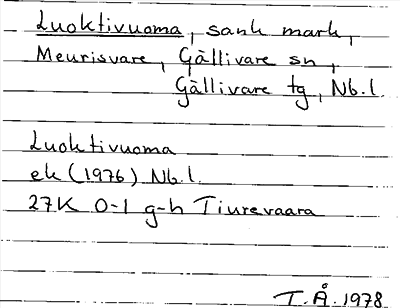 Luoktivuoma, sank mark,
Meurisvare, Gällivare sn,
Gällivare tg, Nb.l.
Luoktivuoma
ek (1976) Nb.l.
27K 0-1 g-h Tiurevaara
T.Å. 1978